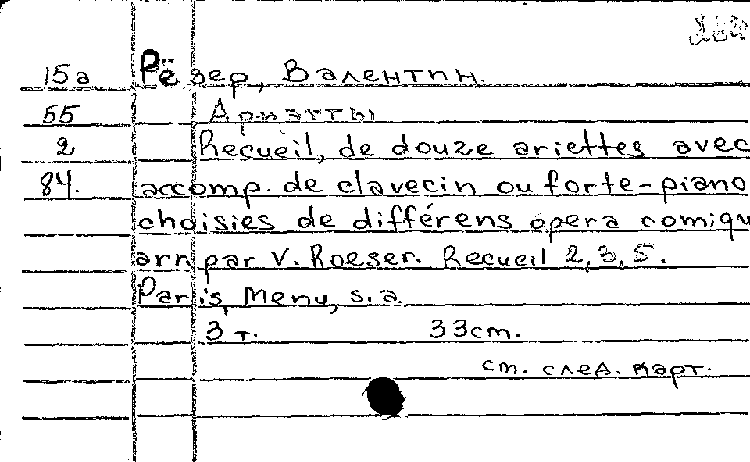 15а Рёзер, Валентин.
55 Ариэтты
2 Recueil, de douze ariettes avec
84. accomp. de clavecin ou forte-piano
choisies de différens opera comiqu
arr par V. Roeser. Recueil 2,3,5.
Paris, Menu, s.a.
3 т. 33cm.
см. след. карт.